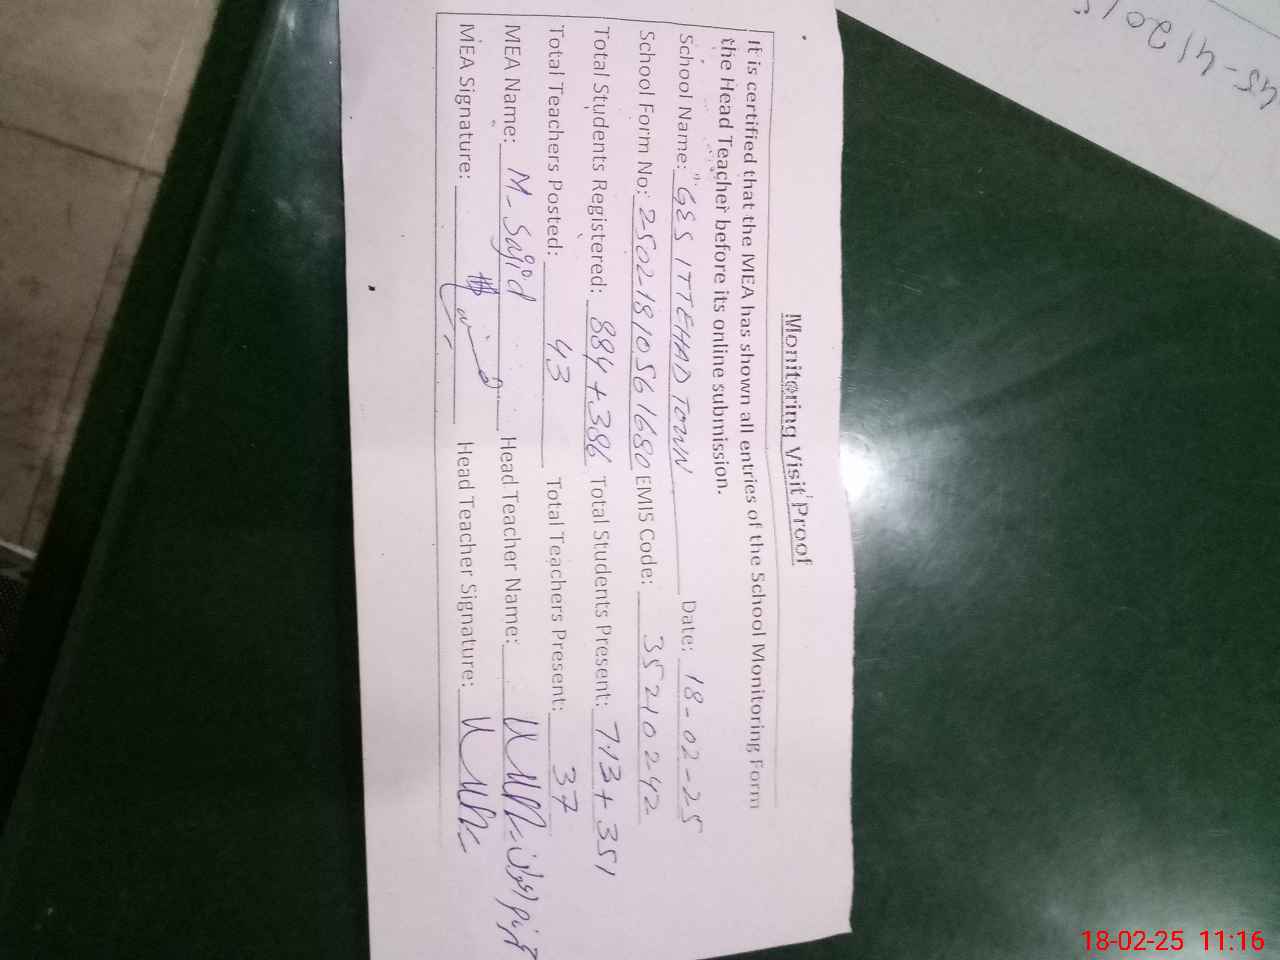 Monitoring Visit Proof
It is certified that the MEA has shown all entries of the School Monitoring Form
the Head Teacher before its online submission.
School Name: GES ITTEHAD TOWN Date: 18-02-25
School Form No: 25021810561680 EMIS Code: 35210242
Total Students Registered: 884+386 Total Students Present: 713+351
Total Teachers Posted: 43 Total Teachers Present: 37
MEA Name: M-Sajid Head Teacher Name:
MEA Signature: Head Teacher Signature:
18-02-25 11:16